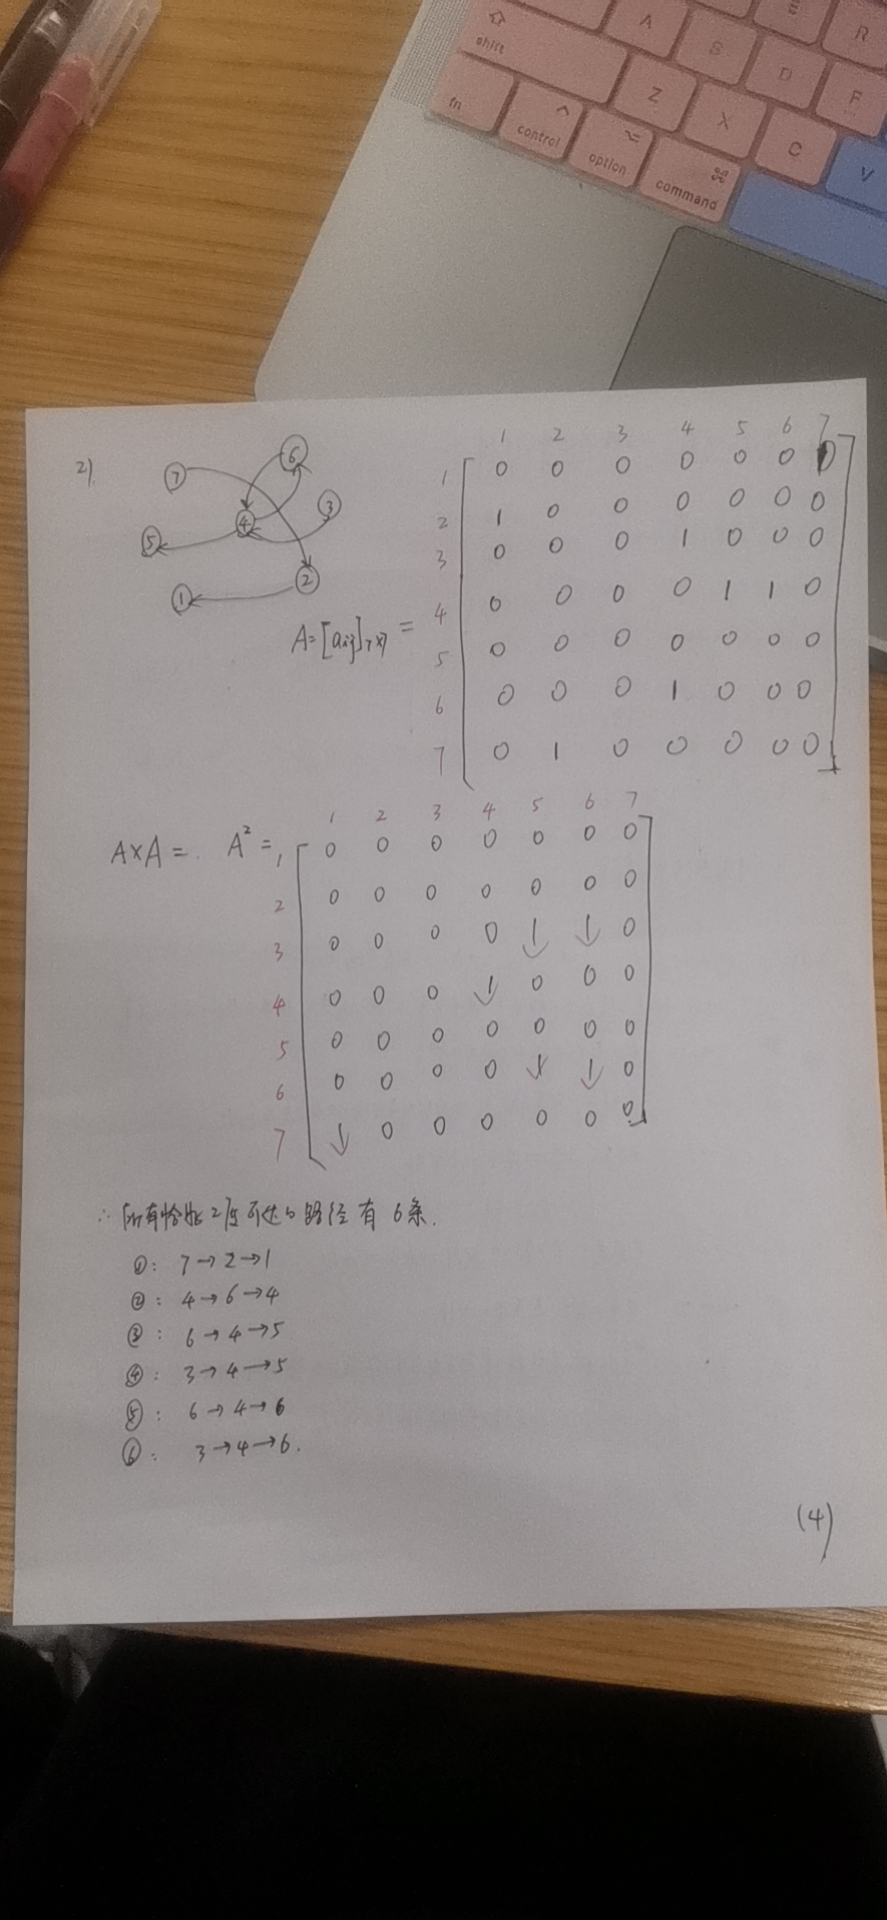 A
E
R
shift
S
D
F
fn
Z
X
C
V
control
option
command
2).
7
6
3
4
5
2
1
A=[aij]7×7 =
1 2 3 4 5 6 7
1 0 0 0 0 0 0 0
2 1 0 0 0 0 0 0
3 0 0 0 1 0 0 0
4 0 0 0 0 1 1 0
5 0 0 0 0 0 0 0
6 0 0 0 1 0 0 0
7 0 1 0 0 0 0 0
A×A =. A² =
1 2 3 4 5 6 7
1 0 0 0 0 0 0 0
2 0 0 0 0 0 0 0
3 0 0 0 0 1 1 0
4 0 0 0 1 0 0 0
5 0 0 0 0 0 0 0
6 0 0 0 0 1 1 0
7 1 0 0 0 0 0 0
∴ 所有恰好2度可达的路径有 6条.
①: 7→2→1
②: 4→6→4
③: 6→4→5
④: 3→4→5
⑤: 6→4→6
⑥: 3→4→6.
(4)